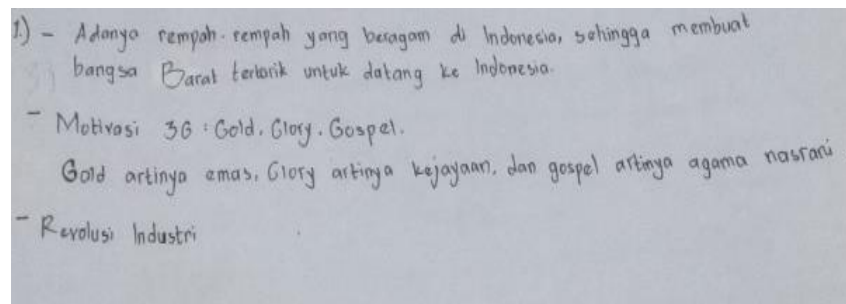 1.) - Adanya rempah-rempah yang beragam di Indonesia, sehingga membuat
bangsa Barat tertarik untuk datang ke Indonesia.
- Motivasi 3G : Gold, Glory, Gospel.
Gold artinya emas, Glory artinya kejayaan, dan gospel artinya agama nasrani
- Revolusi Industri